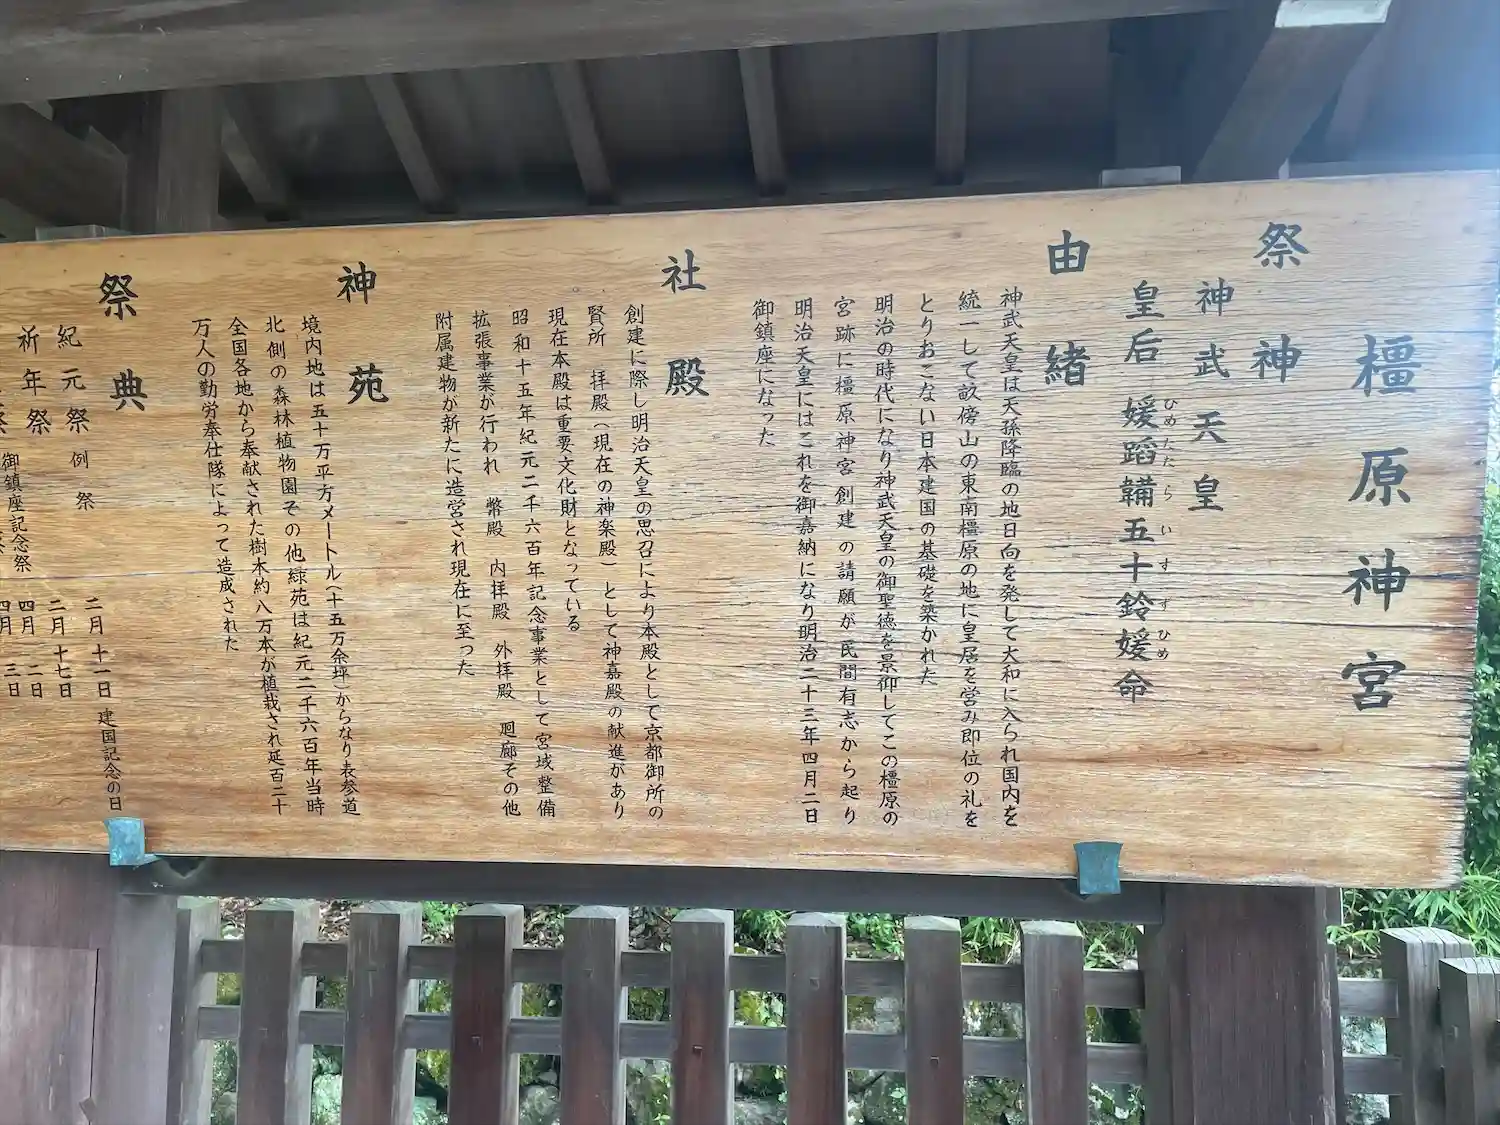 橿原神宮
祭神
神武天皇
皇后 媛蹈韛五十鈴媛命
ひめたたらいすずひめ
由緒
神武天皇は天孫降臨の地日向を発して大和に入られ国内を
統一して畝傍山の東南橿原の地に皇居を営み即位の礼を
とりおこない日本建国の基礎を築かれた
明治の時代になり神武天皇の御聖徳を景仰してこの橿原の
宮跡に橿原神宮創建の請願が民間有志から起り
明治天皇にはこれを御嘉納になり明治二十三年四月二日
御鎮座になった
社殿
創建に際し明治天皇の思召により本殿として京都御所の
賢所 拝殿(現在の神楽殿)として神嘉殿の献進があり
現在本殿は重要文化財となっている
昭和十五年紀元二千六百年記念事業として宮域整備
拡張事業が行われ 幣殿 内拝殿 外拝殿 廻廊その他
附属建物が新たに造営され現在に至った
神苑
境内地は五十万平方メートル(十五万余坪)からなり表参道
北側の森林植物園その他緑苑は紀元二千六百年当時
全国各地から奉献された樹木約八万本が植栽され延百二十
万人の勤労奉仕隊によって造成された
祭典
紀元祭 例祭 二月十一日 建国記念の日
祈年祭 二月十七日
御鎮座記念祭 四月二日
四月三日